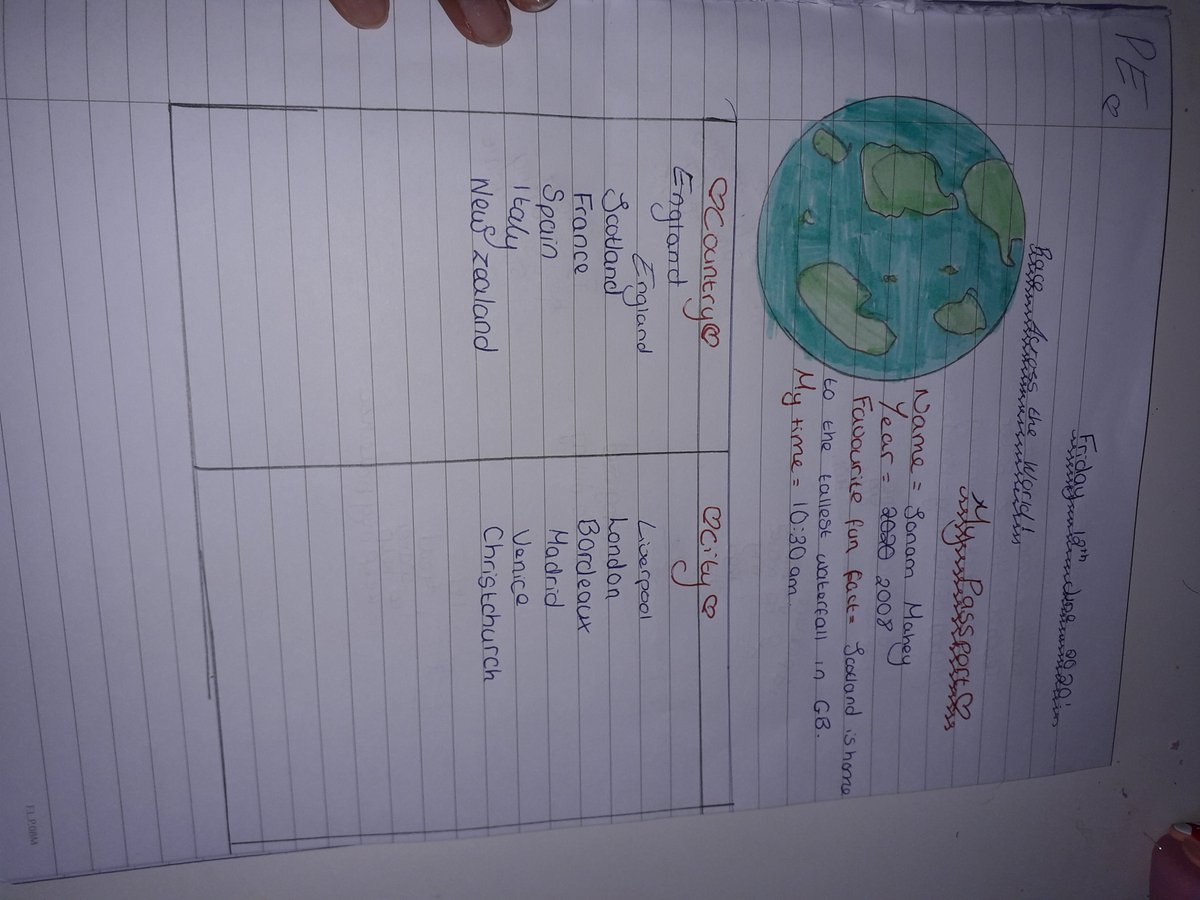 PE
Friday 18th 2020
Race Across the World!
My Passport
Name = Sanam Mahey
Year = 2020 2008
Favourite fun fact = Scotland is home
to the tallest waterfall in GB.
My time = 10:30am.
Country City
England
England Liverpool
Scotland London
France Bordeaux
Spain Madrid
Italy Venice
New Zealand Christchurch